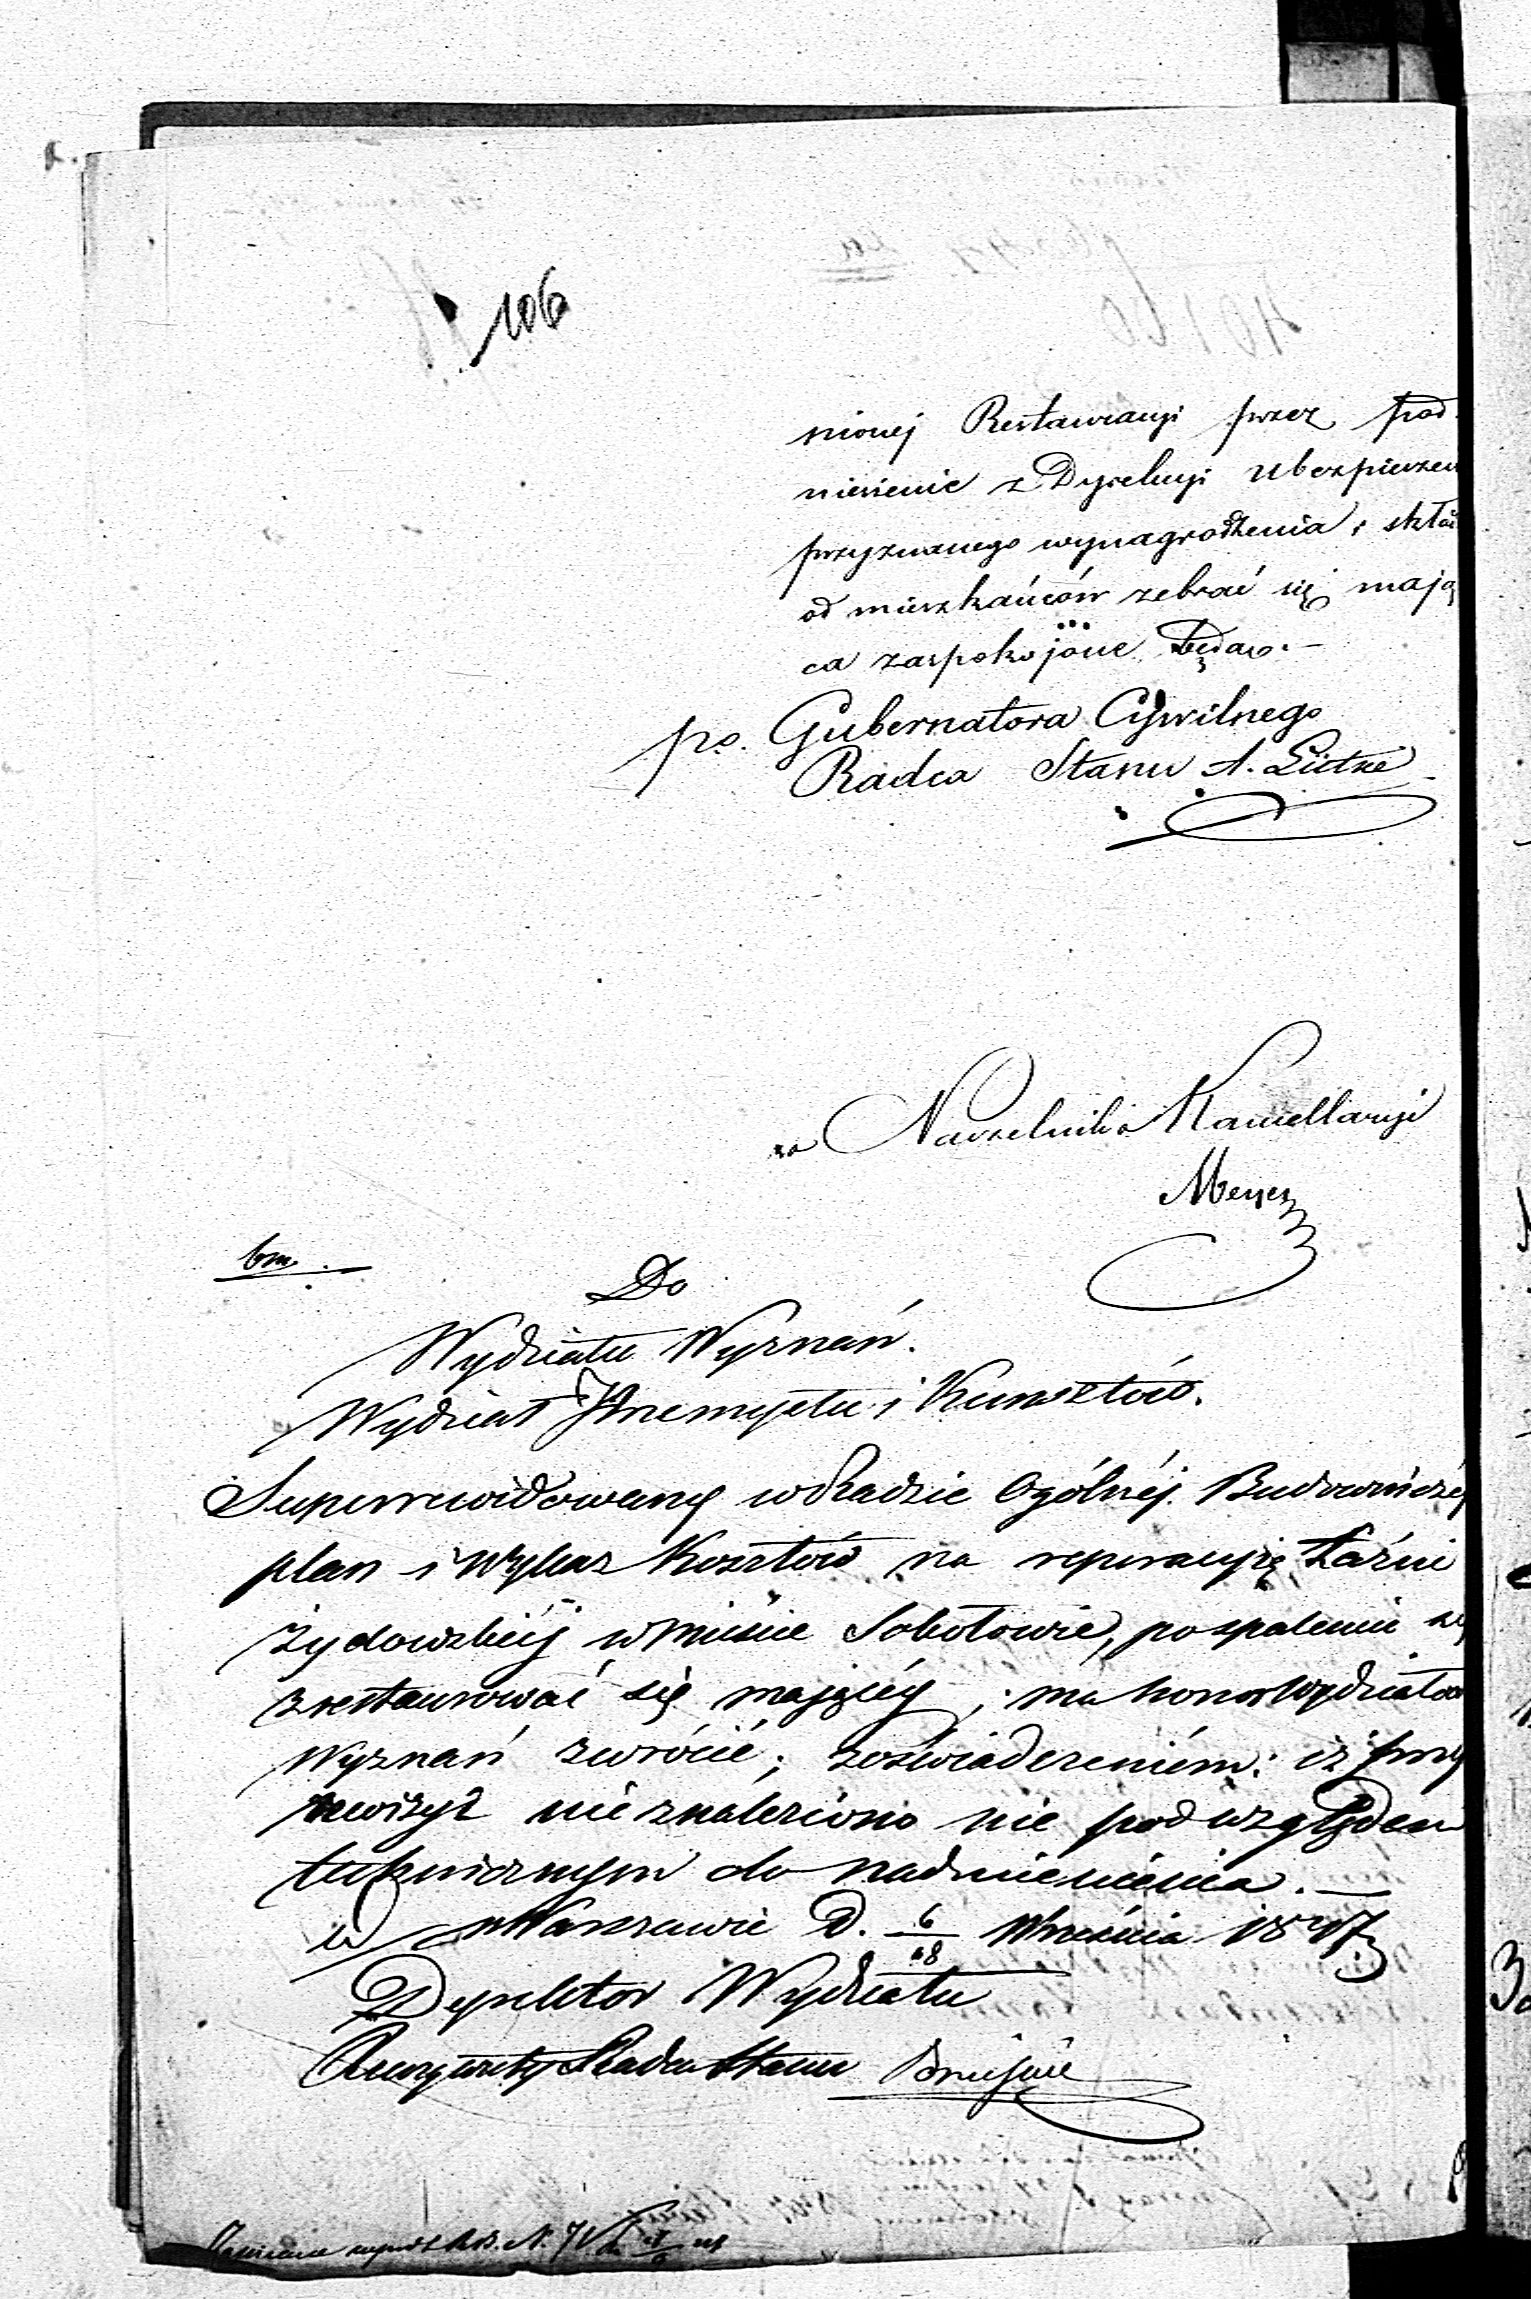 106
nionej Restauracyi przez pod-
niesienie z Dyrekcyi Ubezpieczeń
przyznanego wynagrodzenia, i skład
od mieszkańców zebrać się mają
ca zaspokojone będą.—
po. Gubernatora Cywilnego
Radca Stanu A. Lütke
za Naczelnika Kancellaryi
Meyer
Do
Wydziału Wyznań.
Wydział Przemysłu i Kunsztów.
Superrewidowany w Radzie Ogólnéj Budowniczéj
plan i wykaz kosztów na reparacyię Łaźni
żydowskiéj w mieście Sobotowie, po spaleniu
zrestaurować się mającéj, ma honor Wydziałowi
Wyznań zwrócić; z oświadczeniem: iż przy
rewizyi nie znaleziono nic pod względem
technicznym do nadmienienia.—
w Warszawie D. 6/18 Września 1847
Dyrektor Wydziału
Rzeczywisty Radca Stanu